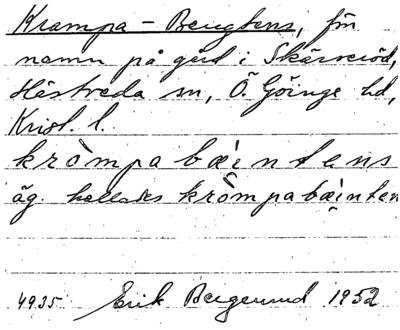 Krampa-Bengtens, för
namn på gård i Skärsröd,
Hästveda sn, Ö. Göinge hd,
Krist. l.
kròmpabæ̀intens
äg. kallades kròmpabæ̀inten
4935 Erik Bergeund 1952